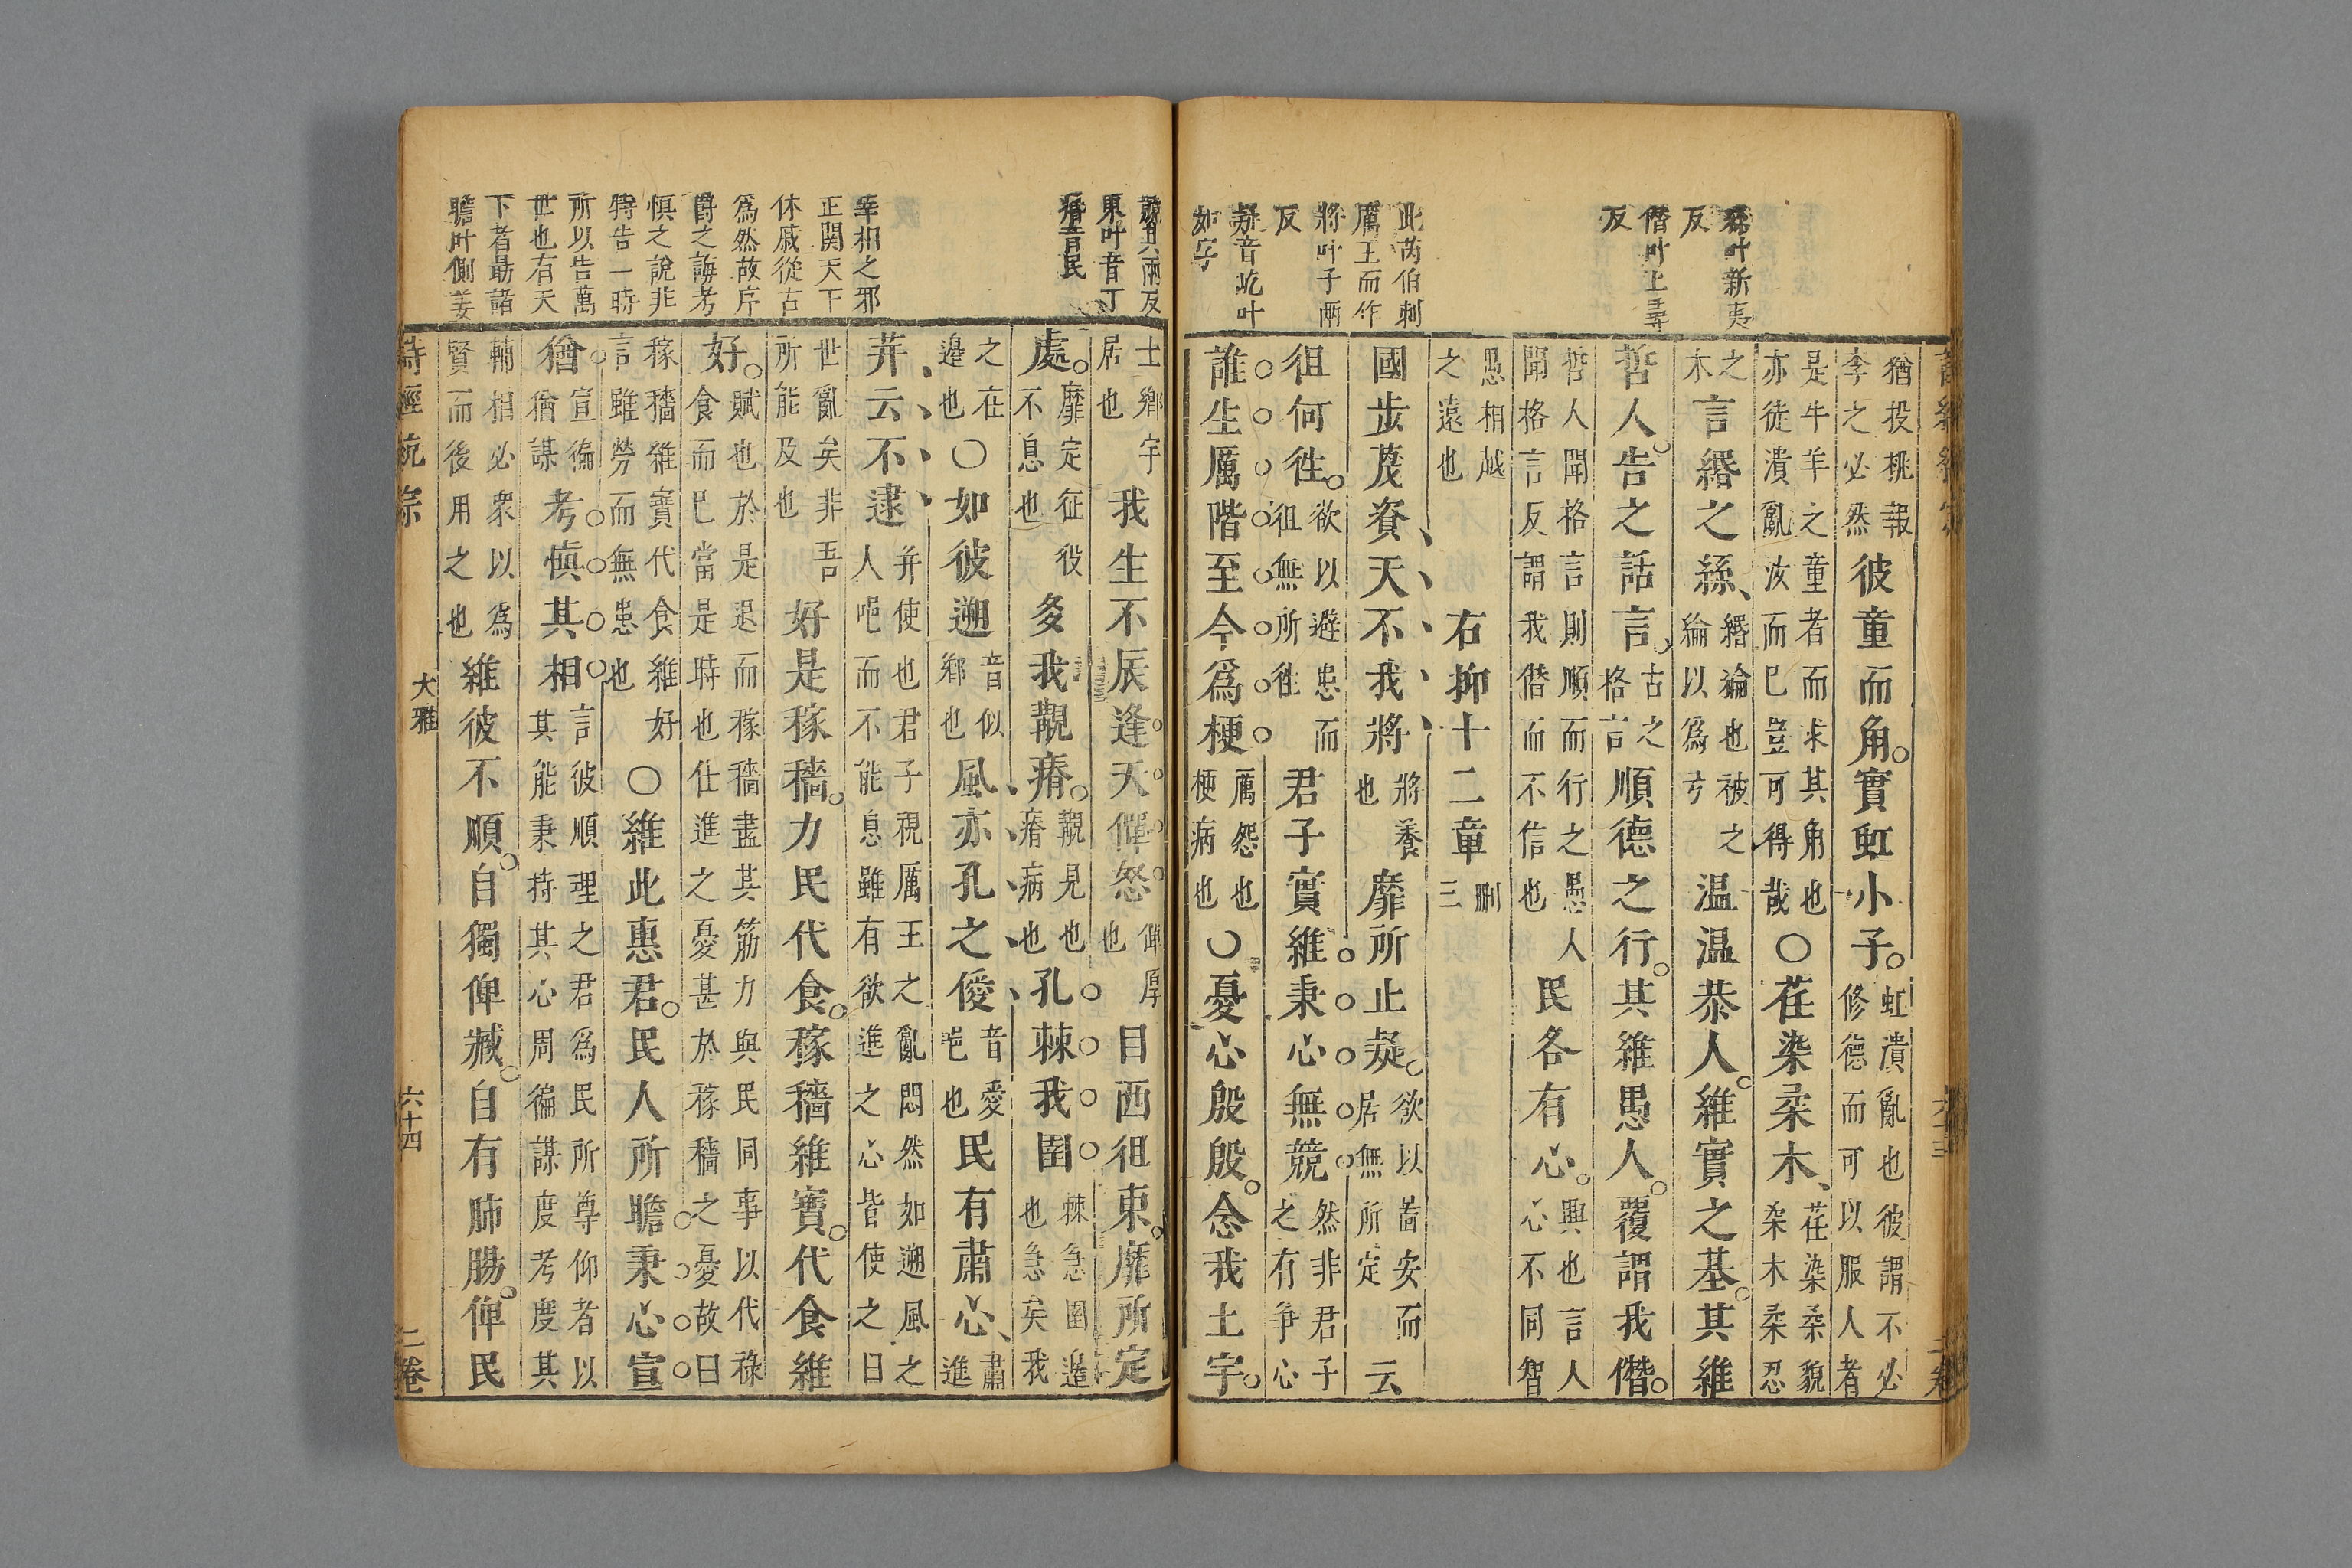 絲叶新夷
反
僭叶上尋
反
此芮伯刺
厲王而作
將叶子兩
反
疑音屹叶
如字
猶投桃報
李之必然
彼童而角實虹小子
虹潰亂也彼謂不必
修德而可以服人者
是牛羊之童者而求其角也
亦徒潰亂汝而已豈可得哉
○荏染柔木
荏染柔貌
柔木柔忍
之
木
言緡之絲
緡綸也被之
綸以為弓
温温恭人維實之基其維
哲人告之話言
古之
格言
順德之行其維愚人覆謂我僭
哲人聞格言則順而行之愚人
聞格言反謂我僭而不信也
民各有心
興也言人
心不同智
愚相越
之遠也
右抑十二章
刪
三
國步蔑資天不我將
將養
也
靡所止疑
欲以啚安而
居無所定
云
徂何徃
欲以避患而
徂無所徃
君子實維秉心無競
然非君子
之有爭心
誰生厲階至今爲梗
厲怨也
梗病也
○憂心殷殷念我土宇
競其兩反
東叶音丁
痻音民
宰相之邪
正関天下
休戚從古
為然故序
爵之誨考
慎之說非
特告一時
所以告萬
世也有天
下者朂諸
瞻叶側姜
土鄉宇
居也
我生不辰逢天僤怒
僤厚
也
目西徂東靡所定
處
靡定征役
不息也
多我覯痻
覯見也
痻病也
孔棘我圉
棘急圉邉
也急矣我
之在
邉也
○如彼遡
音似
鄉也
風亦孔之僾
音愛
唈也
民有肅心
肅
進
荓云不逮
荓使也君子視厲王之亂悶然如遡風之
人唈而不能息雖有欲進之心皆使之曰
世亂矣非吾
所能及也
好是稼穡力民代食稼穡維寶代食維
好
賦也於是退而稼穡盡其筋力與民同事以代祿
食而已當是時也仕進之憂甚於稼穡之憂故曰
稼穡維寶代食維好
言雖勞而無患也
○維此惠君民人所瞻秉心宣
猶
宣徧
猶謀
考慎其相
言彼順理之君爲民所尊仰者以
其能秉持其心周徧謀度考度其
輔相必衆以爲
賢而後用之也
維彼不順自獨俾臧自有肺腸俾民
詩經統宗 大雅 六十四 二卷